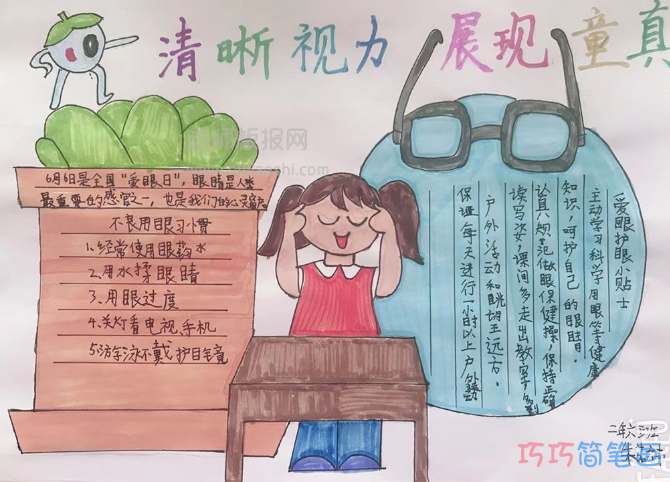 清晰视力 展现童真
6月6日是全国“爱眼日”，眼睛是人类
最重要的感官之一，也是我们的心灵窗户
不良用眼习惯
1.经常使用眼药水
2.用水揉眼睛
3.用眼过度
4.关灯看电视手机
5.游泳不戴护目镜
爱眼护眼小贴士
主动学习科学用眼等健康
知识，呵护自己的眼睛。
认真规范做眼保健操，保持正确
读写姿，课间多走出教室多到
户外活动和眺望远方。
保证每天进行一小时以上户外活动
二年六班
巧巧简笔画